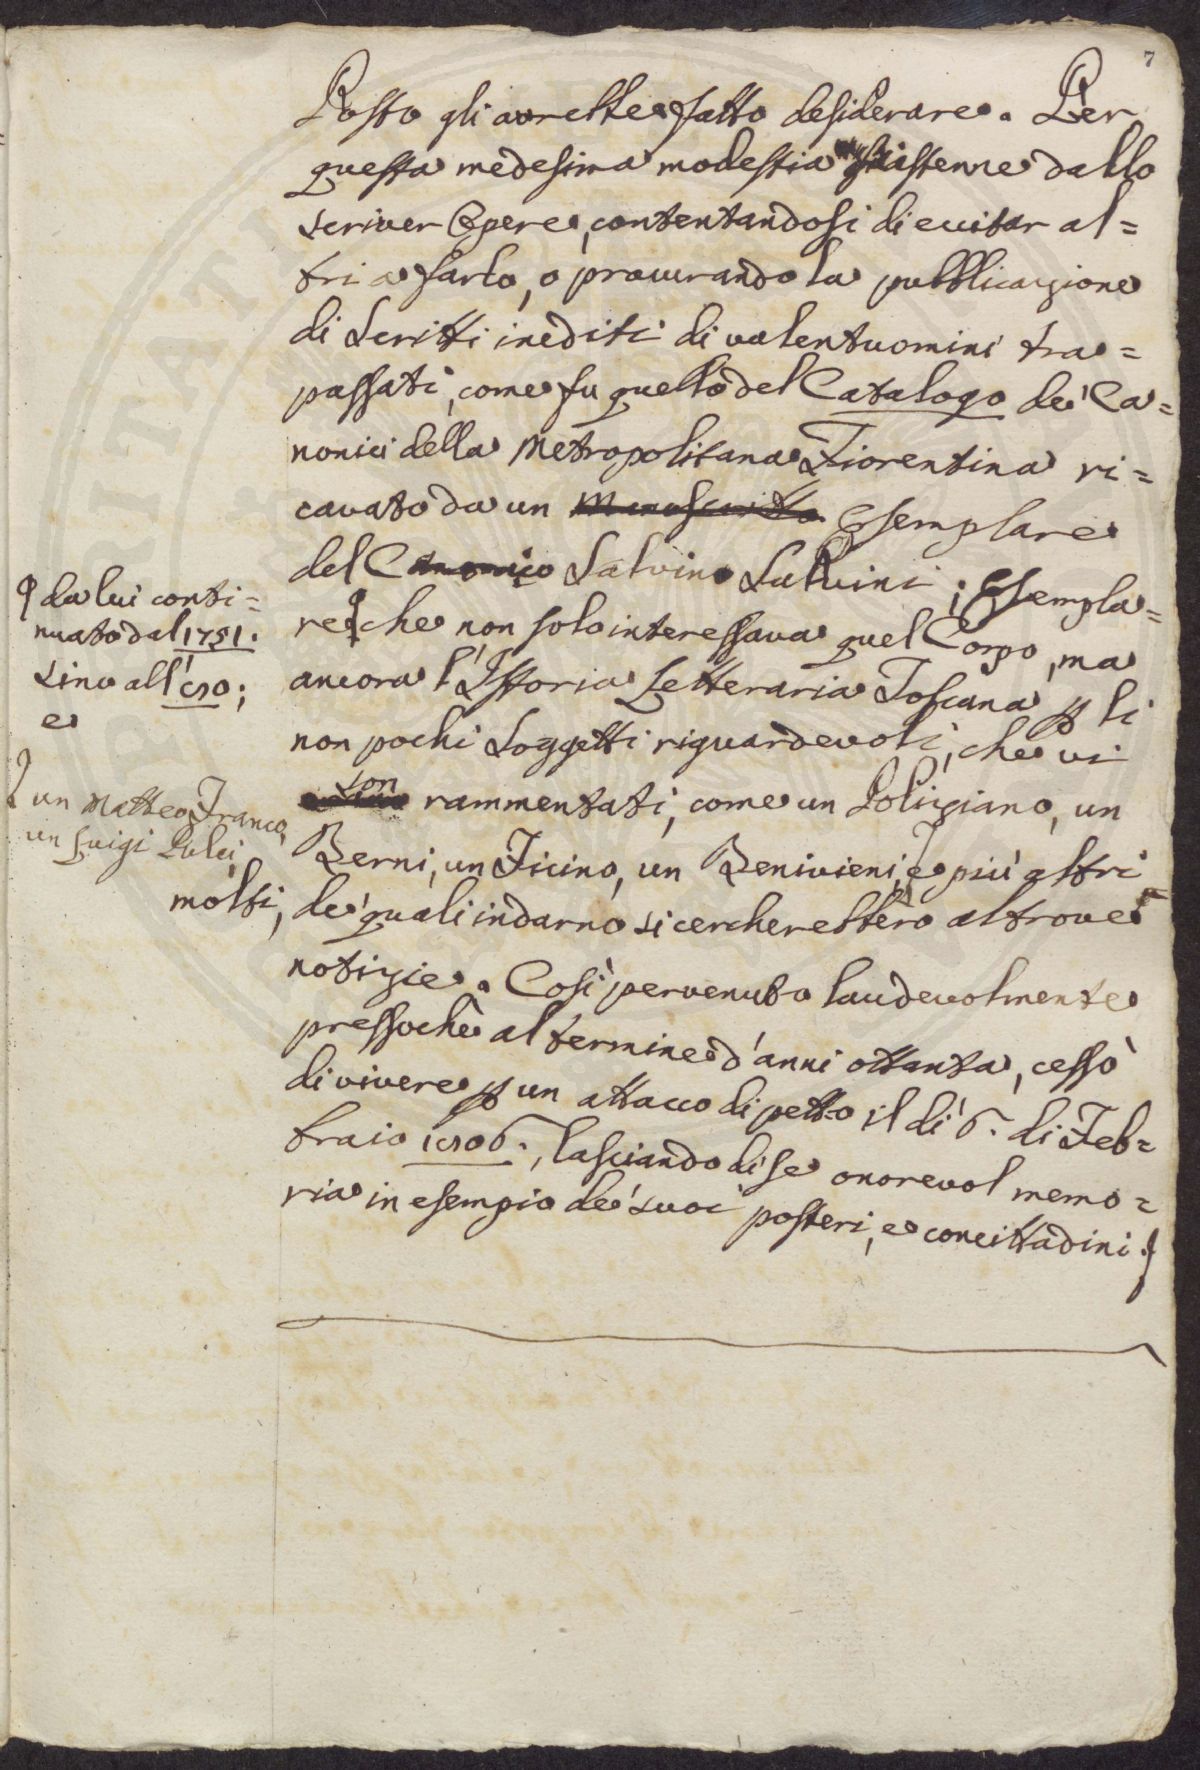 7
Posto gli avrebbe fatto desiderare. Per
questa medesima modestia si astenne dallo
scriver Opere, contentandosi di eccitar al=
tri a farlo, o procurando la pubblicazione
di Scritti inediti di valentuomini tra=
passati, come fu quello del Catalogo de' Ca=
nonici della Metropolitana Fiorentina ri=
cavato da un Manuscritto Esemplare
del Canonico Salvino Salvini; Esempla=
re che non solo interessava quel Corpo, ma
ancora l'Istoria Letteraria Toscana ꝑ li
non pochi Soggetti riguardevoli, che vi
son
rammentati, come un Poliziano, un
Berni, un Ficino, un Benivieni, e più altri
molti, de' quali indarno si cercherebbero altrove
notizie. Così pervenuto laudevolmente
pressochè al termine d'anni ottanta, cessò
di vivere ꝑ un attacco di petto il dì 6. di Feb=
braio 1806., lasciando di se onorevol memo=
ria in esempio de' suoi posteri, e concittadini.
da lui conti=
nuato dal 1751.
sino all'
e
un Matteo Franco,
un Luigi Pulci,